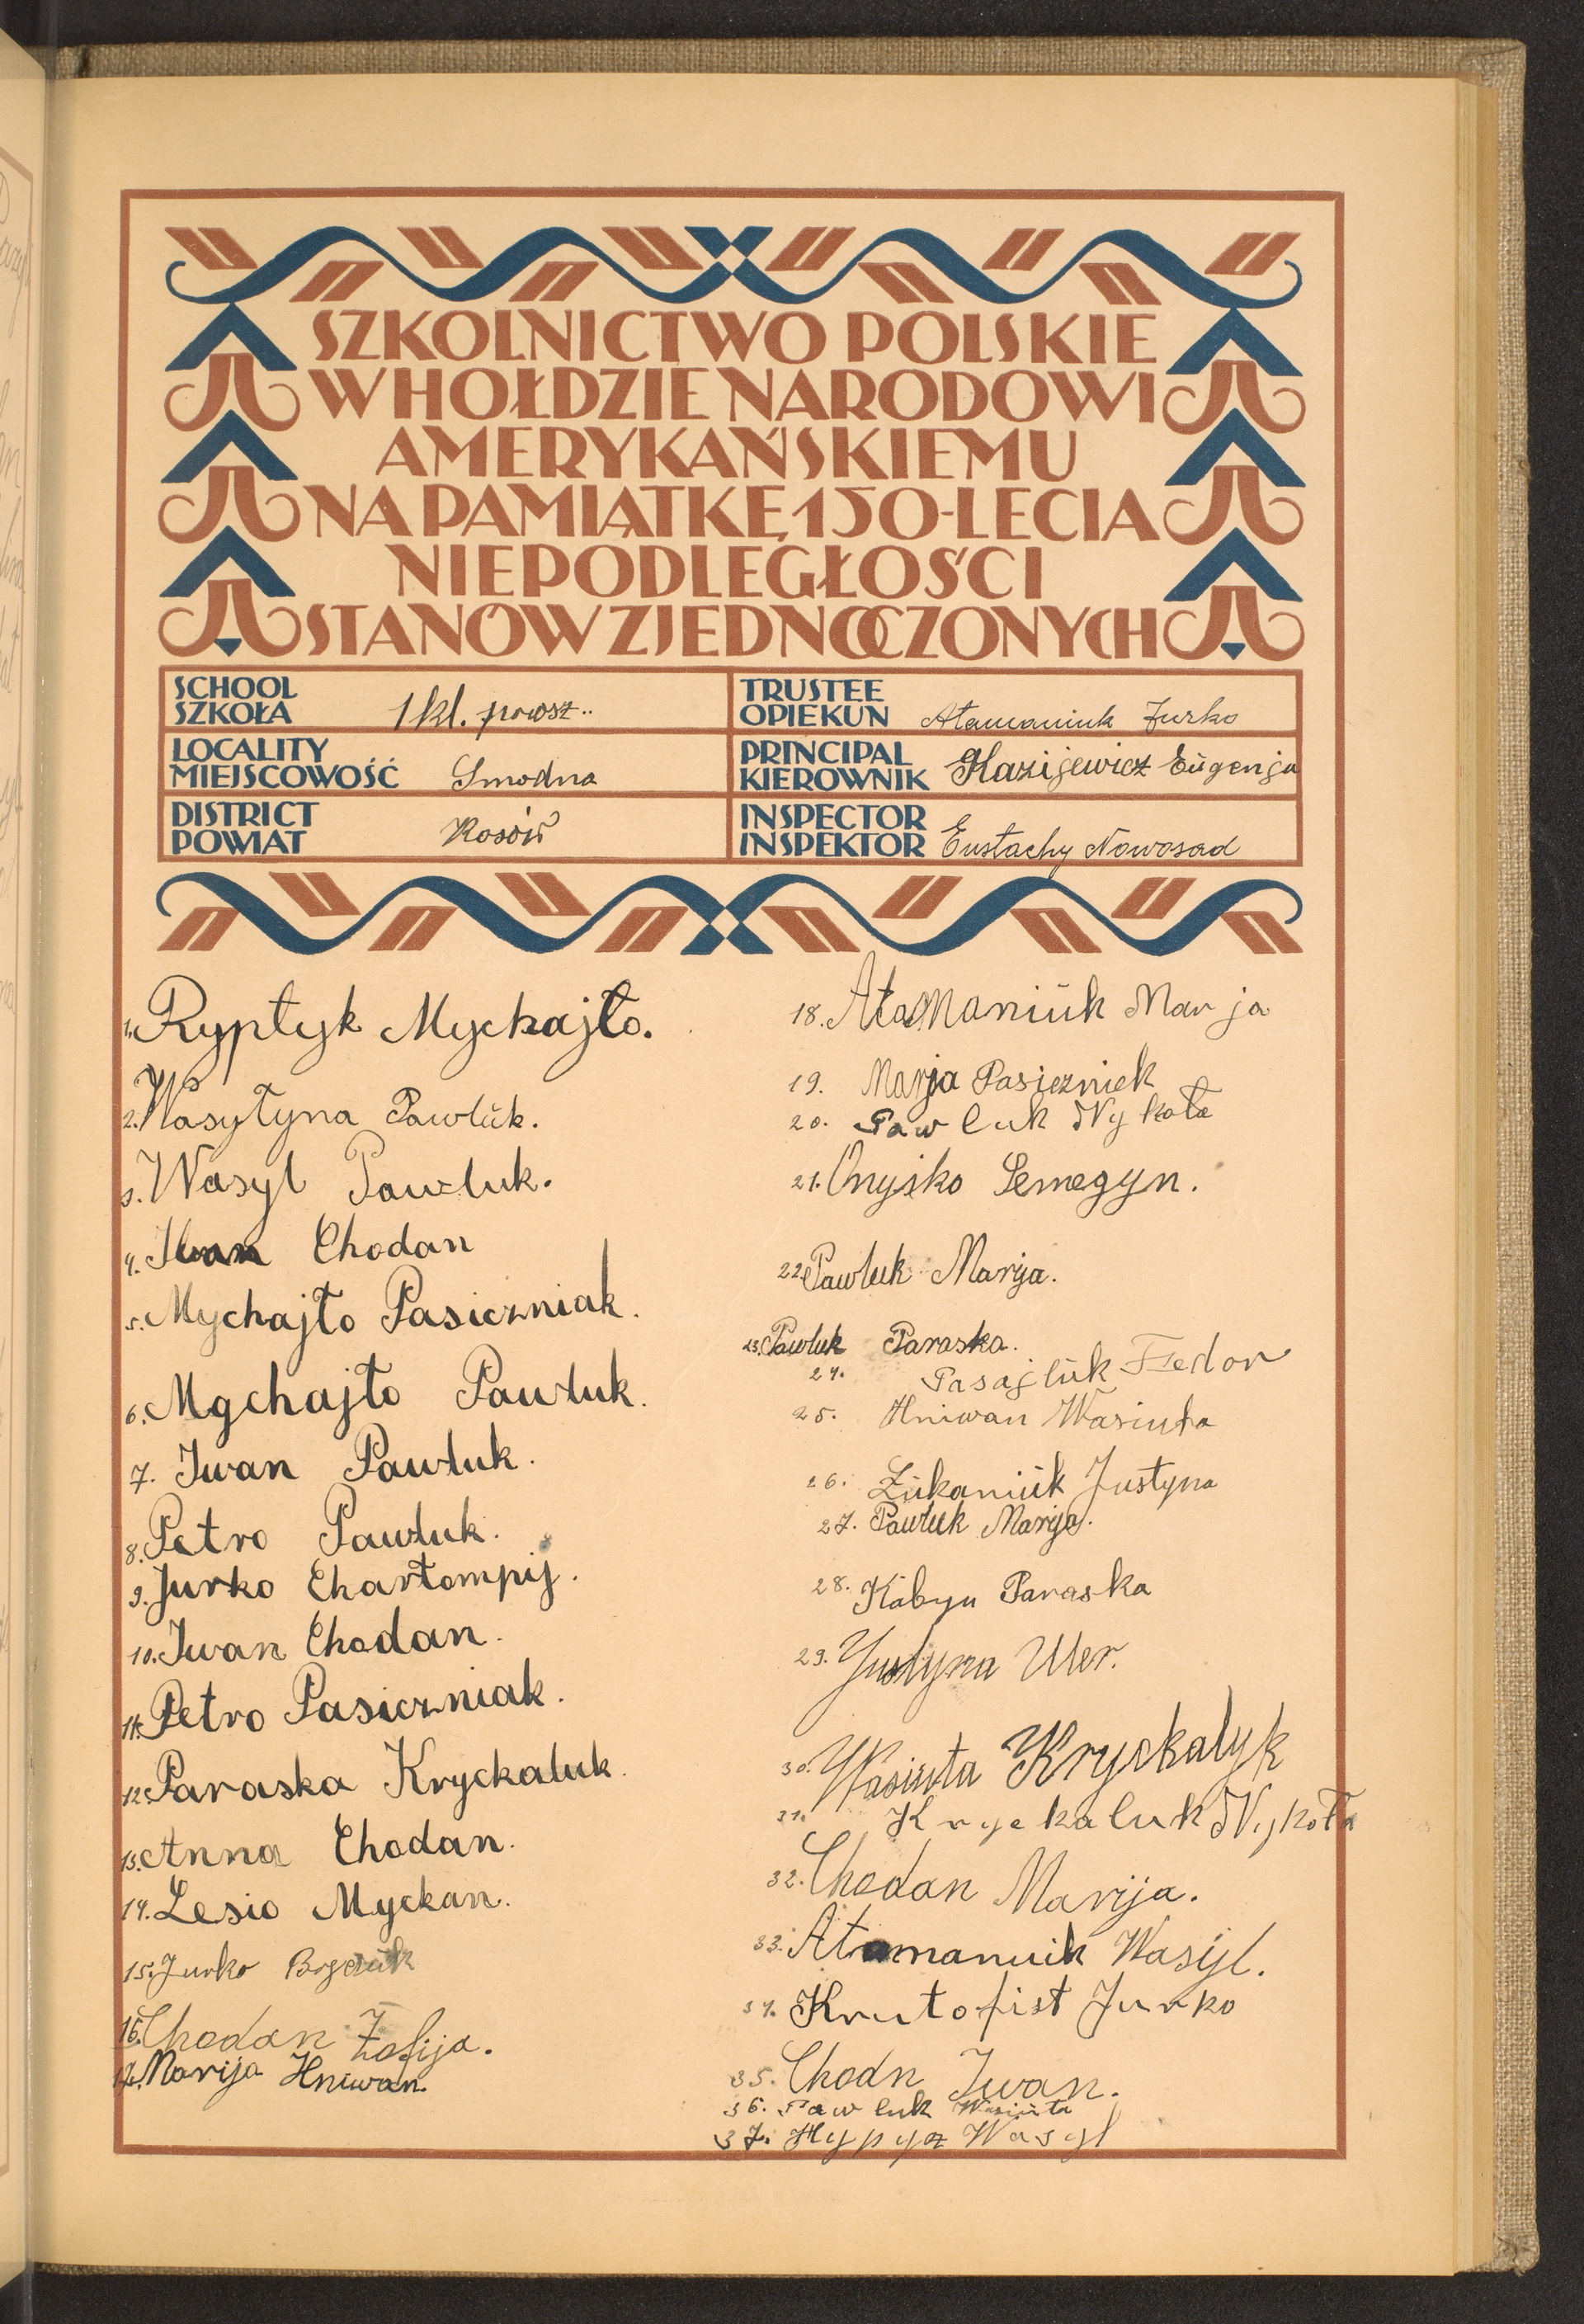 SZKOLNICTWO POLSKIE
W HOŁDZIE NARODOWI
AMERYKAŃSKIEMU
NA PAMIĄTKĘ 150-LECIA
NIEPODLEGŁOŚCI
STANÓW ZJEDNOCZONYCH
SCHOOL
SZKOŁA 1 kl. powsz..
LOCALITY
MIEJSCOWOŚĆ Smodna
DISTRICT
POWIAT Kosów
TRUSTEE
OPIEKUN Atamaniuk Jurko
PRINCIPAL
KIEROWNIK Hazijewicz Eugenja
INSPECTOR
INSPEKTOR Eustachy Nowosad
1. Ryptyk Mychajło.
2. Wasyłyna Pawluk.
3. Wasyl Pawluk.
4. Iwan Chodan
5. Mychajło Pasiczniak.
6. Mychajło Pawluk.
7. Iwan Pawluk.
8. Petro Pawluk.
9. Jurko Chartompij.
10. Iwan Chodan.
11. Petro Pasiczniak.
12. Paraska Kryckaluk.
13. Anna Chodan.
14. Lesio Myckan.
15. Jurko
16. Chodan Zofija.
17. Marija Hniwan.
18. Atamaniuk Marja
19. Marja Pasiezniek
20. Pawluk Nykoła
21. Onyśko Semegyn.
22. Pawluk Marija.
23. Pawluk Paraska.
24. Pasajluk Fedor
25. Hniwan Wasiuta
26. Łukaniuk Justyna
27. Pawluk Marija.
28. Kabyn Paraska
29. Justyna
30. Wasiuta Kryckalyk
31. Kryckaluk Nykoła
32. Chodan Marija.
33. Atamanuik Wasyl.
34. Krutofist Jurko
35. Chodn Iwan.
36. Pawluk Wasiuta
37. Hypycz Wasyl